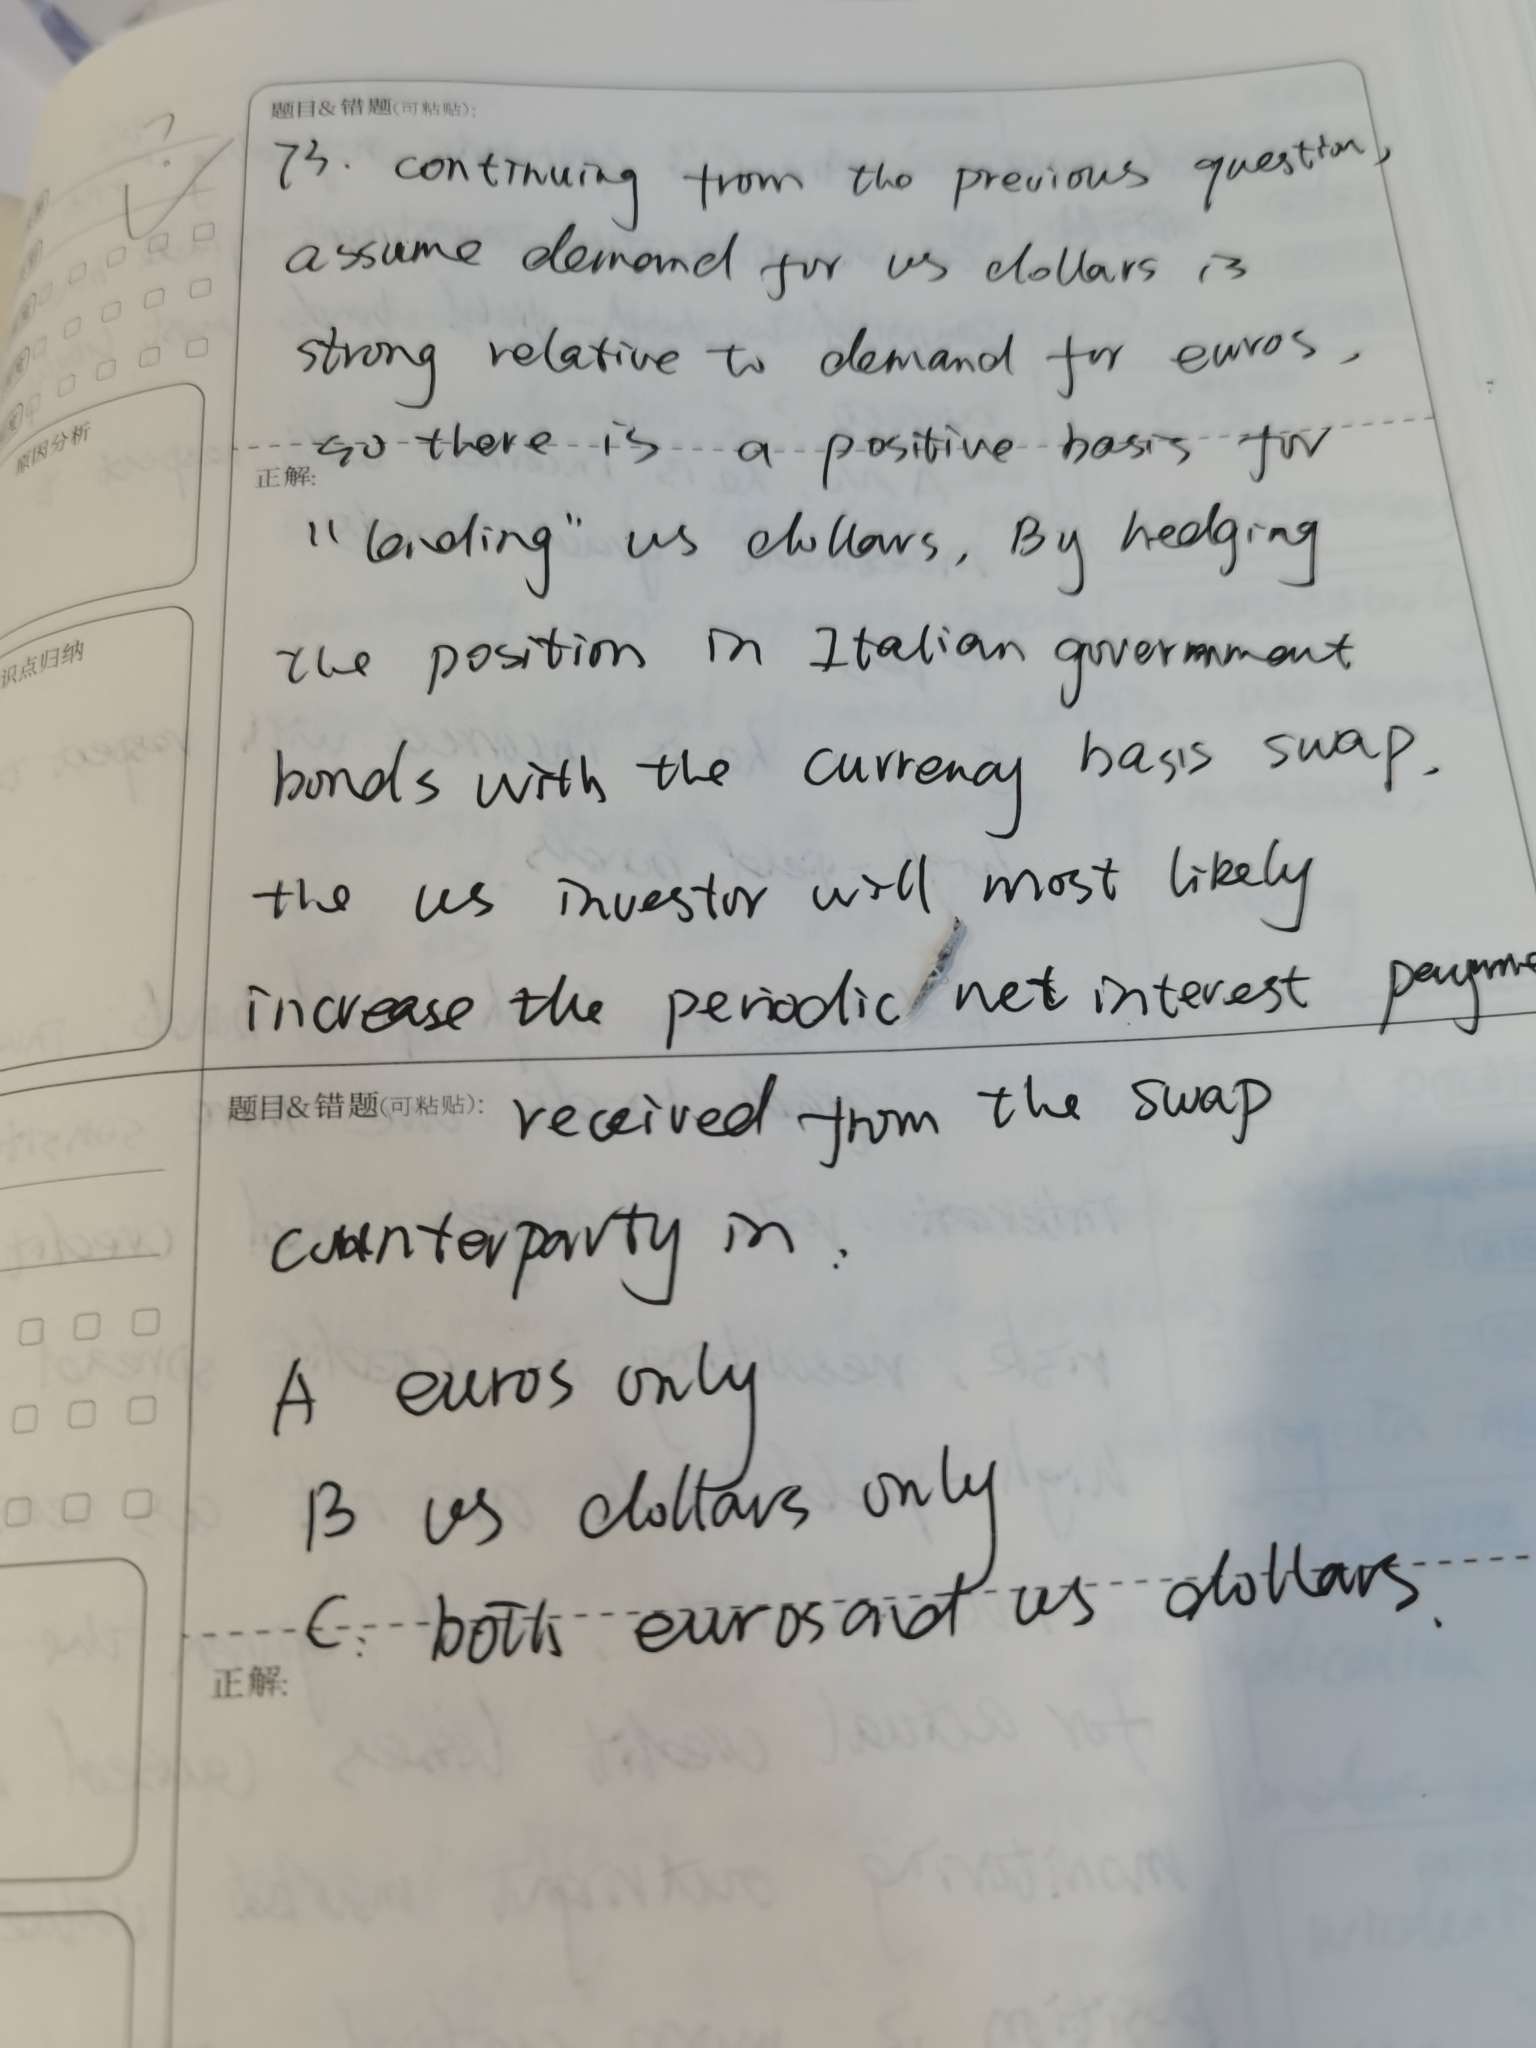 题目&错题(可粘贴):
73. continuing from the previous question,
assume demand for us dollars is
strong relative to demand for euros,
so there is a positive basis for
原因分析
正解:
"lending" us dollars, By hedging
the position in Italian government
识点归纳
bonds with the currency basis swap.
the us investor will most likely
increase the periodic net interest payme
题目&错题(可粘贴): received from the swap
counterparty in:
A euros only
B us dollars only
C. both euros and us dollars.
正解: